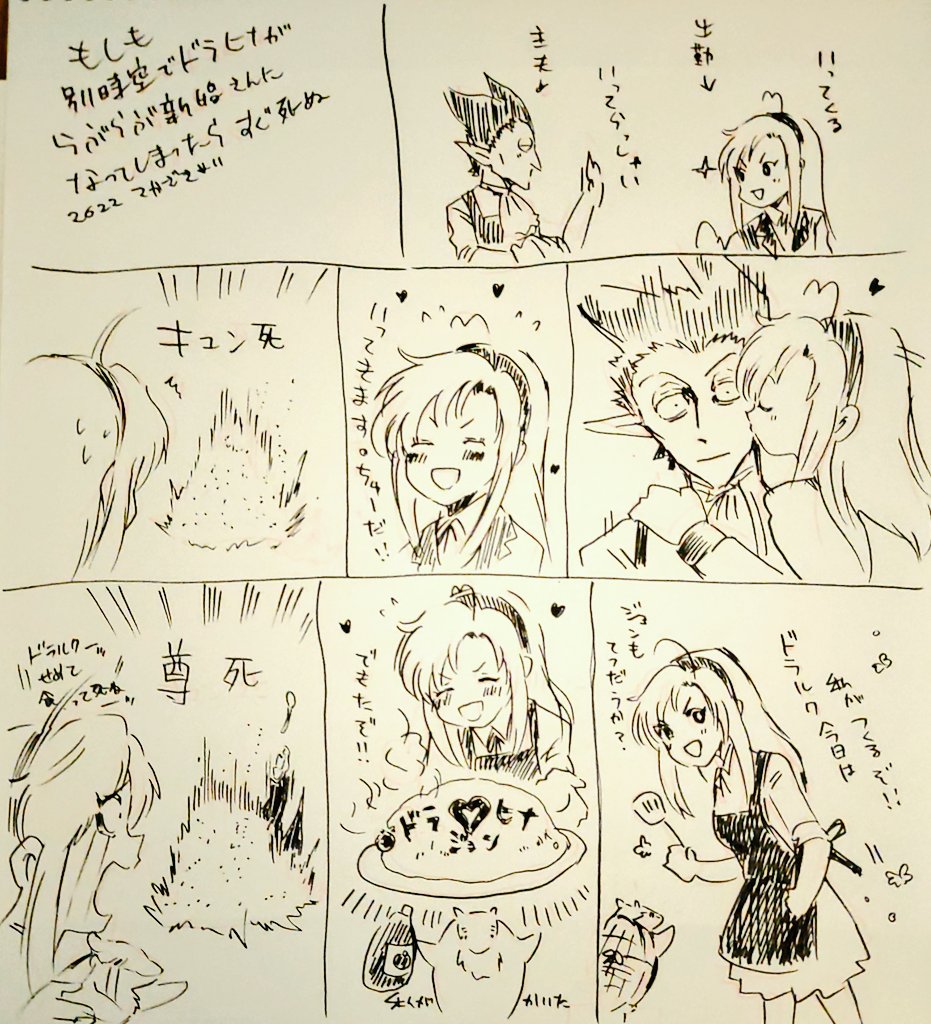 もしも
別時空でドラヒナが
らぶらぶ新婚さんに
なってしまったら すぐ死ぬ
2022
出勤↓
いってくる
主夫↓
いってらっしゃい
いってきますのちゅーだ!!
キュン死
ドラルク 今日は
私が つくるぞ!!
ジョンも
てつだうか?
できたぞ!!
ドラ♥ヒナ
ジョン
ぬんが
かいた
尊死
ドラルクーッ
せめて
食って死ね